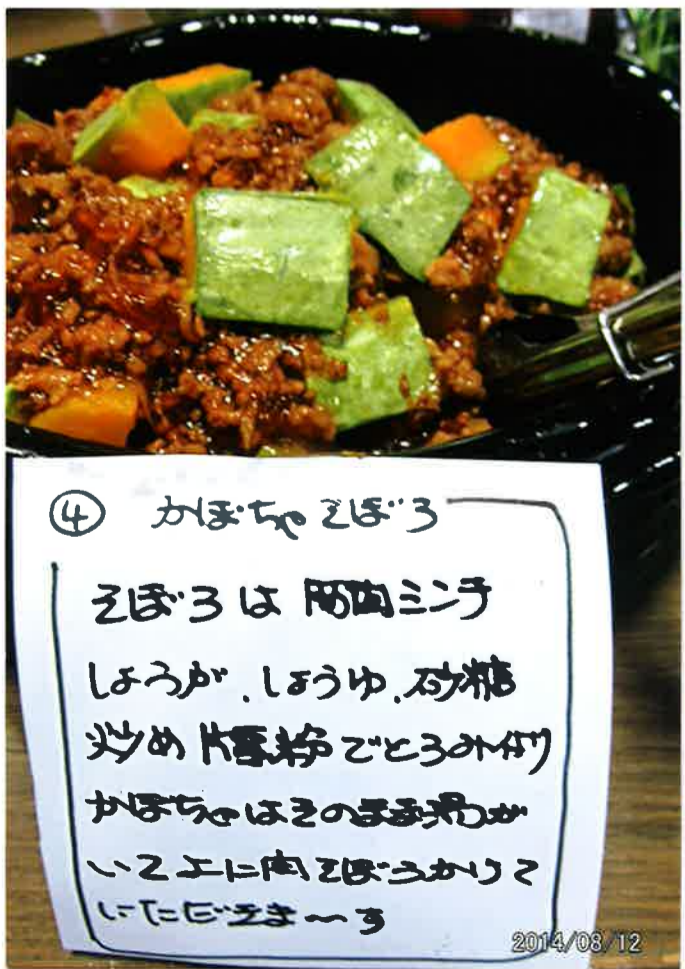 ④ かぼちゃそぼろ
そぼろは豚肉ミンチ
しょうが、しょうゆ、砂糖
炒め片栗粉でとろみ付け
かぼちゃはそのまま湯が
いて上に肉そぼろかけて
いただきま〜す
2014/08/12